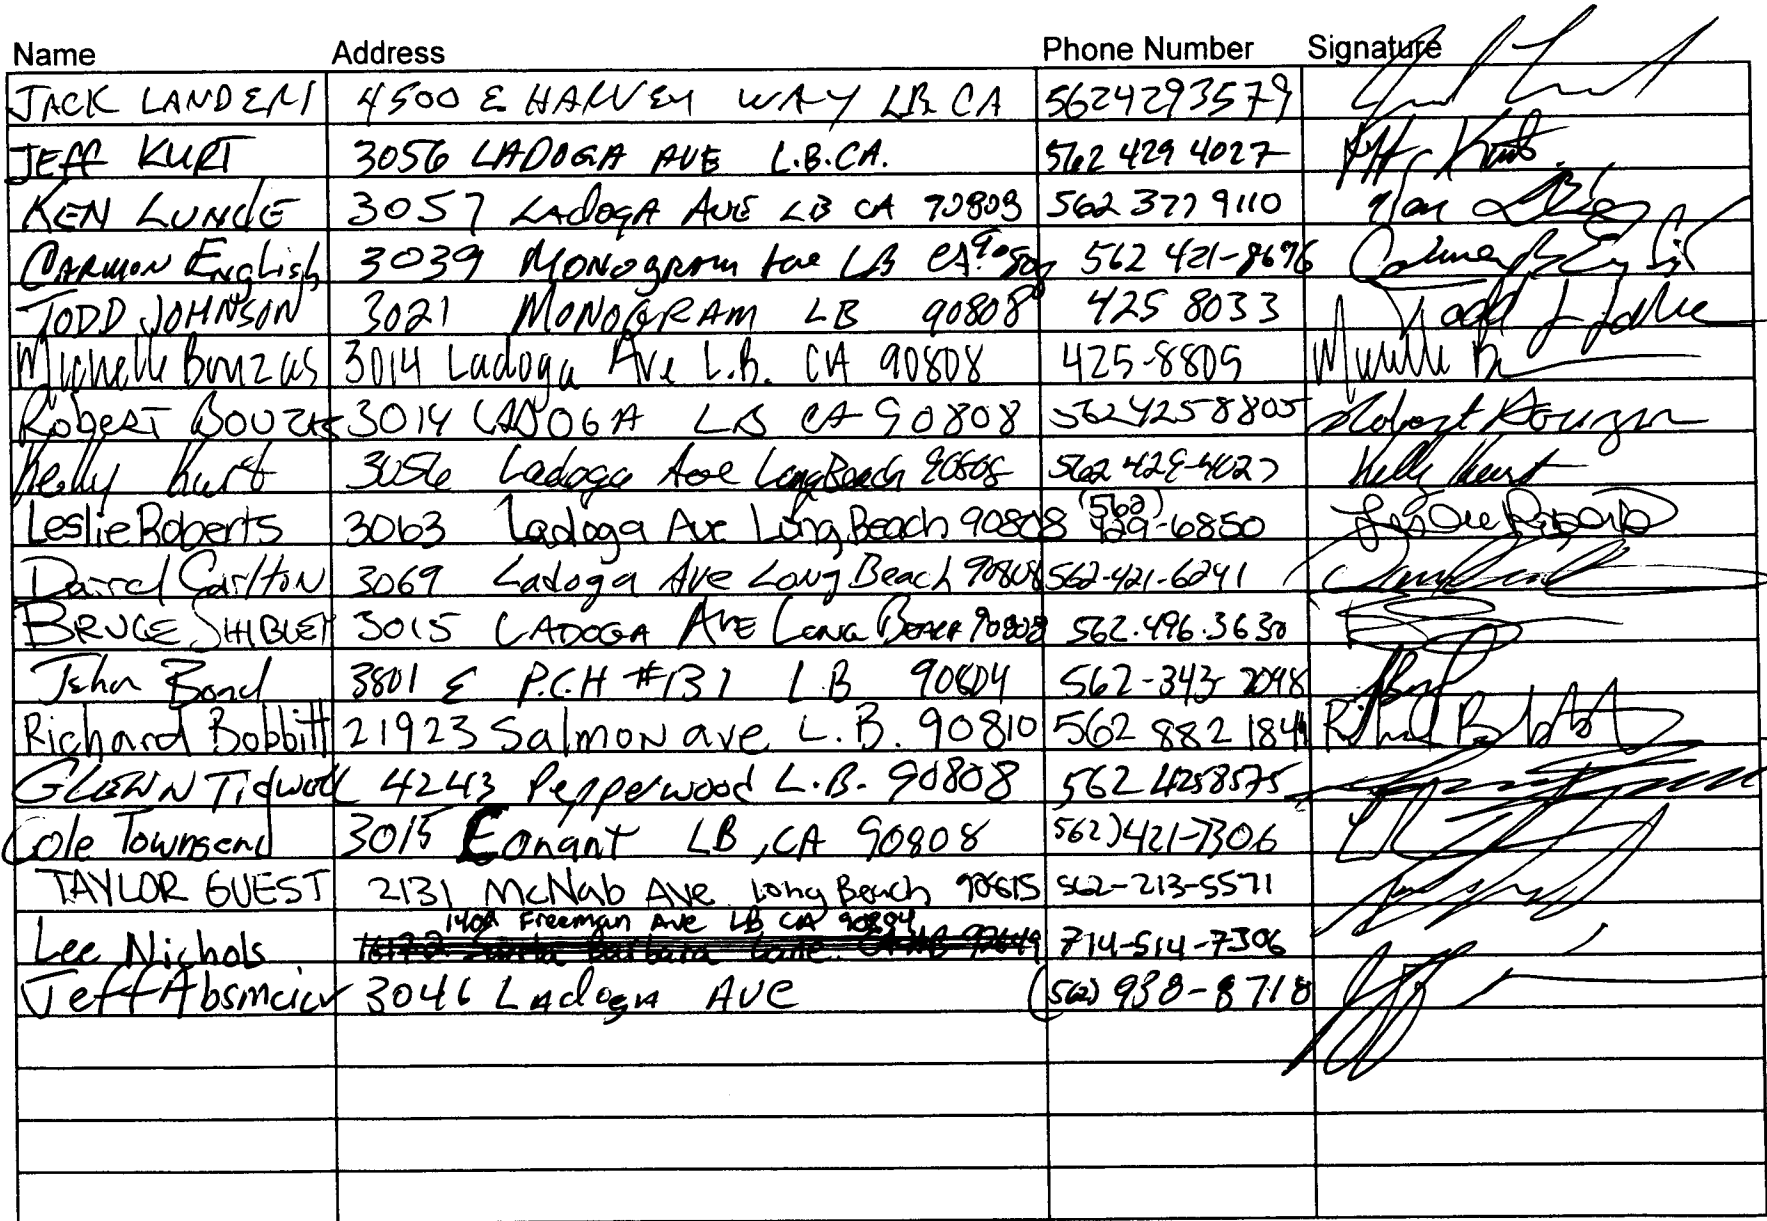 Name Address Phone Number Signature
JACK LANDERS 4500 E HARVEY WAY LB CA 5624293579
JEFF KURT 3056 LADOGA AVE L.B.CA. 562 429 4027 Jeff Kurt
KEN LUNDE 3057 LADOGA AVE LB CA 90808 562 377 9110
CARMON English 3039 MONOGRAM Ave LB CA 90808 562 421-8696
TODD JOHNSON 3021 MONOGRAM LB 90808 425 8033
Michelle Bouzas 3014 Ladoga Ave L.B. CA 90808 425-8805 Michelle B
Robert Bouzas 3014 LADOGA LB CA 90808 5624258805 Robert Bouzas
Kelly Kurt 3056 Ladoga Ave Long Beach 90808 562 429-4027 Kelly Kurt
Leslie Roberts 3063 Ladoga Ave Long Beach 90808 (562) 429-6850 Leslie Roberts
Darrel Carlton 3069 Ladoga Ave Long Beach 90808 562-421-6241
BRUCE SHIBLEY 3015 LADOGA AVE LONG BEACH 90808 562.496.3630
John Bond 3801 E P.C.H #131 LB 90804 562-343-2098
Richard Bobbitt 21923 Salmon ave L.B. 90810 562 882 1844 Richard Bobbitt
GLENN Tidwell 4243 Pepperwood L.B. 90808 562 4258575
Cole Townsend 3015 Conant LB, CA 90808 562) 421-7306
TAYLOR GUEST 2131 McNab Ave Long Beach 90815 562-213-5571
Lee Nichols 1408 Freeman Ave LB CA 90804 714-514-7306
Jeff Absmeier 3046 Ladoga AVE (562) 938-8718